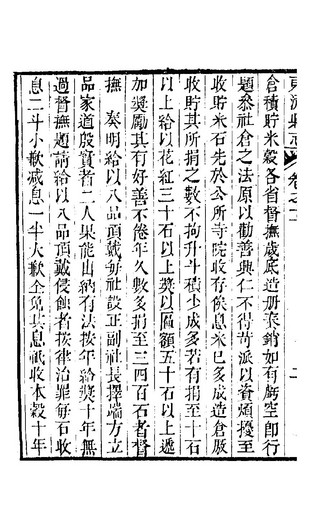 倉積貯米穀各省督撫歲底造册奏銷如有虧空卽行
題叅社倉之法原以勸善興仁不得苛派以資煩擾至
收貯米石先於公所寺院收存俟息米已多成造倉厫
收貯其所捐之數不拘升斗積少成多若有捐至十石
以上給以花紅三十石以上獎以匾額五十石以上遞
加獎勵其有好善不倦年久數多捐至三四百石者督
撫 奏明給以八品頂戴每社設正副社長擇端方立
品家道殷實者二人果能出納有法按年給獎十年無
過督撫題請給以八品頂戴侵蝕者按律治罪每石收
息二斗小歉減息一半大歉全免其息祇收本穀十年